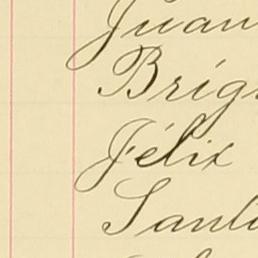 Juan
Bríg
Félix
Sant